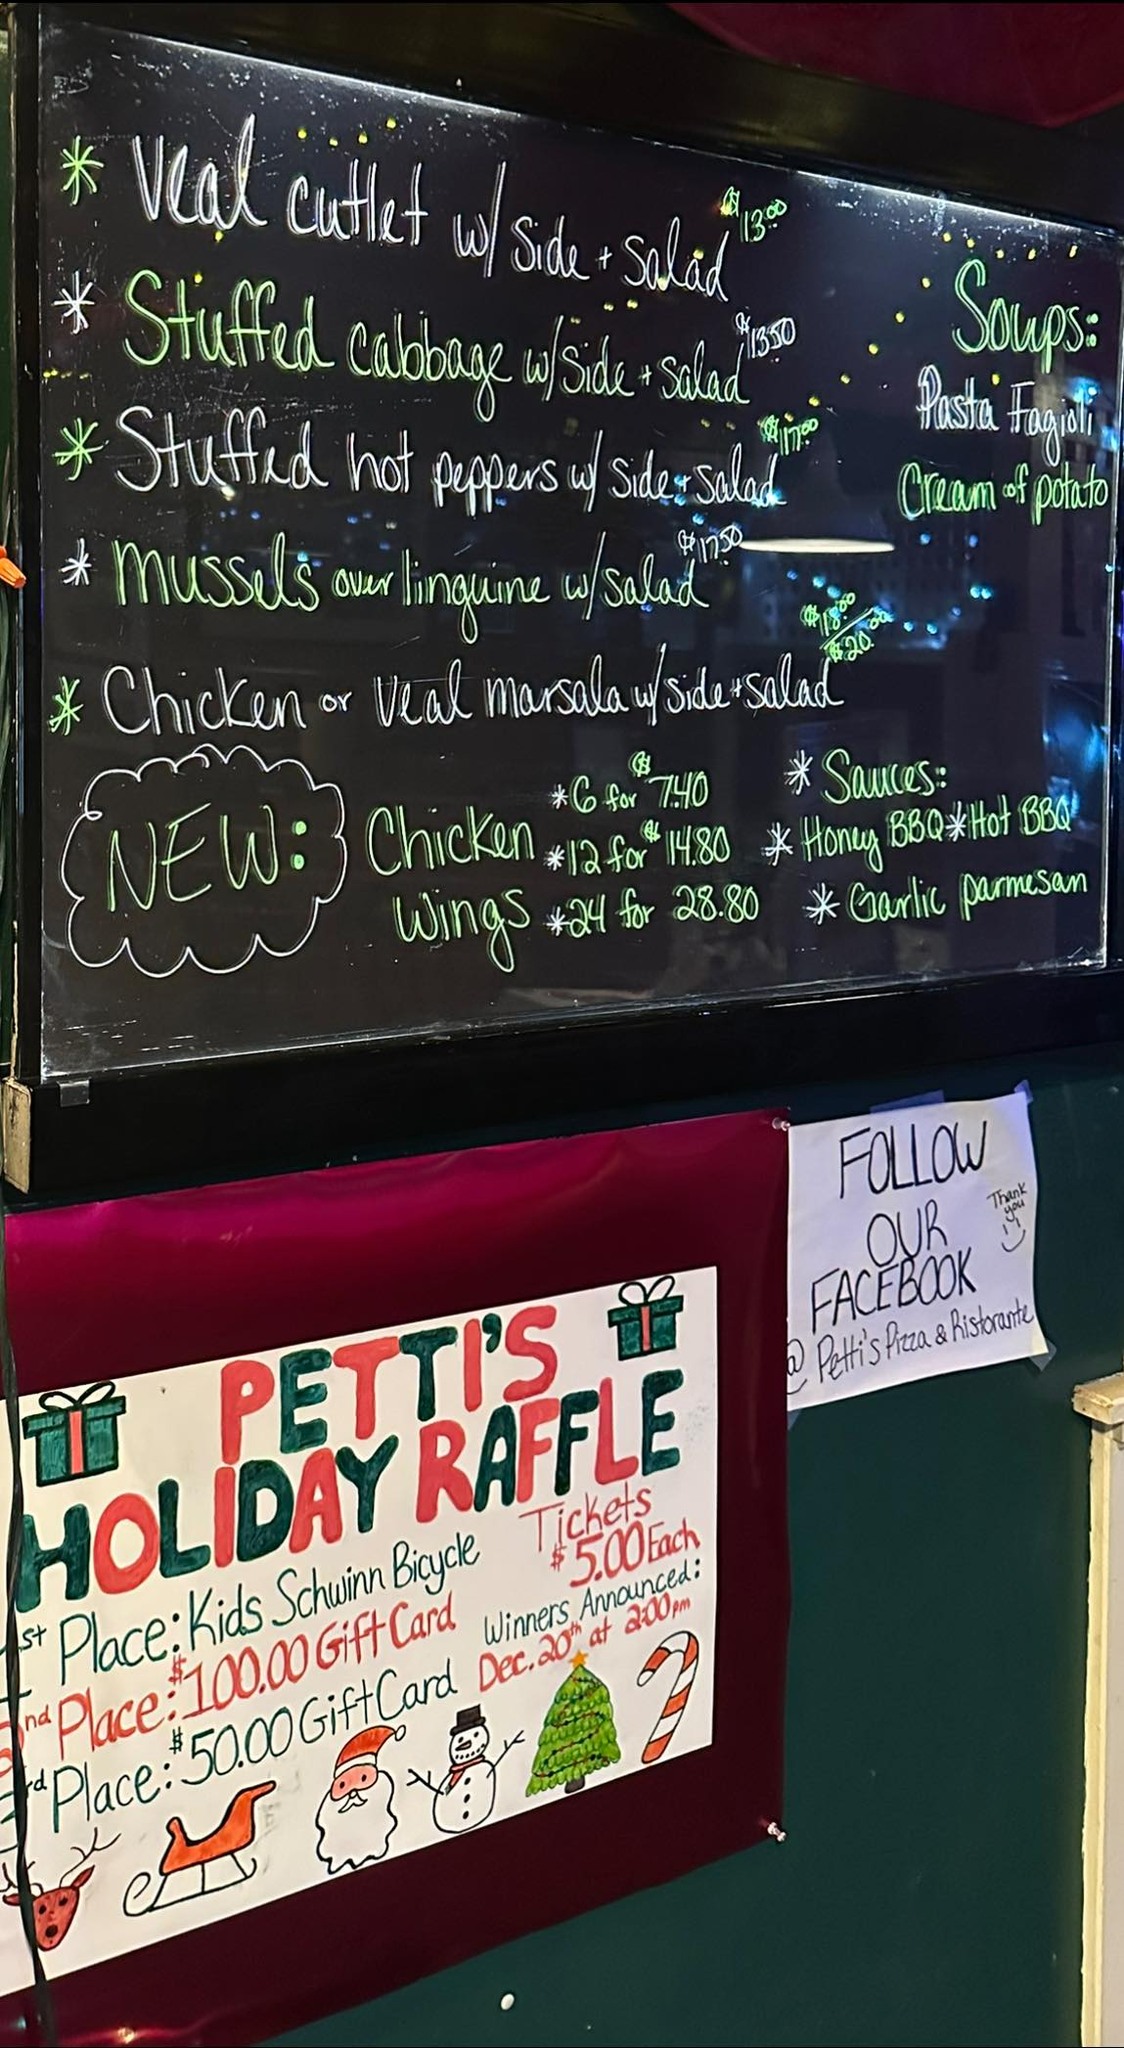 * Veal cutlet w/ side + salad $13.00
* Stuffed cabbage w/ side + salad $13.50
* Stuffed hot peppers w/ side + salad $17.00
* Mussels over linguine w/ salad $17.50
* Chicken or Veal marsala w/ side + salad $18.00/$20.00
Soups:
Pasta Fagioli
Cream of potato
NEW:
Chicken
Wings
* 6 for $7.40
* 12 for $14.80
* 24 for 28.80
* Sauces:
* Honey BBQ * Hot BBQ
* Garlic parmesan
FOLLOW
OUR
FACEBOOK
@ Petti's Pizza & Ristorante
Thank
you
PETTI'S
HOLIDAY RAFFLE
Tickets
$5.00 Each
1st Place: Kids Schwinn Bicycle
2nd Place: $100.00 Gift Card
3rd Place: $50.00 Gift Card
Winners Announced:
Dec. 20th at 2:00pm